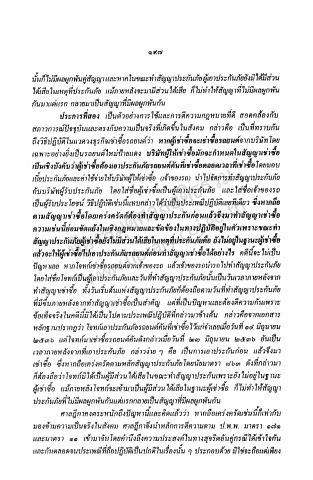 ๑๙๗
นั้นก็ไม่มีผลผูกพันคู่สัญญาและหากในขณะทำสัญญาประกันภัยผู้เอาประกันภัยยังมิได้มีส่วน
ได้เสียในเหตุที่ประกันภัย แม้ภายหลังจะมามีส่วนได้เสีย ก็ไม่ทำให้สัญญาที่ไม่มีผลผูกพัน
กันมาแต่แรก กลายมาเป็นสัญญาที่มีผลผูกพันกัน
ประการที่สอง เป็นตัวอย่างการใช้และการตีความกฎหมายที่ดี สอดคล้องกับ
สภาวการณ์ปัจจุบันและตรงกับความเป็นจริงที่เกิดขึ้นในสังคม กล่าวคือ เป็นที่ทราบกัน
ถึงวิธีปฏิบัติในแวดวงธุรกิจเช่าซื้อรถยนต์ว่า หากผู้เช่าซื้อจะเช่าซื้อรถยนต์จากบริษัทโดย
เฉพาะอย่างยิ่งเป็นรถยนต์ใหม่ป้ายแดง บริษัทผู้ให้เช่าซื้อมักจะกำหนดในสัญญาเช่าซื้อ
เป็นเชิงบังคับว่าผู้เช่าซื้อต้องเอาประกันภัยรถยนต์คันที่เช่าซื้อตลอดเวลาที่เช่าซื้อโดยมอบ
เบี้ยประกันภัยและค่าใช้จ่ายให้บริษัทผู้ให้เช่าซื้อ (เจ้าของรถ) นำไปจัดการทำสัญญาประกันภัย
กับบริษัทผู้รับประกันภัย โดยใส่ชื่อผู้เช่าซื้อเป็นผู้เอาประกันภัย และใส่ชื่อเจ้าของรถ
เป็นผู้รับประโยชน์ วิธีปฏิบัติเช่นนี้แทบกล่าวได้ว่าเป็นประเพณีปฏิบัติเลยทีเดียว ซึ่งหากถือ
ตามสัญญาเช่าซื้อโดยเคร่งครัดก็ต้องทำสัญญาประกันภัยก่อนแล้วจึงมาทำสัญญาเช่าซื้อ
ความเช่นนี้ย่อมขัดแย้งในเชิงกฎหมายและขัดข้องในทางปฏิบัติอยู่ในตัวเพราะขณะทำ
สัญญาประกันภัยผู้เช่าซื้อยังไม่มีส่วนได้เสียในเหตุที่ประกันภัยคือ ยังไม่อยู่ในฐานะผู้เช่าซื้อ
แล้วจะให้ผู้เช่าซื้อไปเอาประกันภัยรถยนต์ก่อนทำสัญญาเช่าซื้อได้อย่างไร คดีนี้จะไม่เป็น
ปัญหาเลย หากโจทก์เช่าซื้อรถยนต์จากเจ้าของรถ แล้วเจ้าของรถนำรถไปทำสัญญาประกันภัย
โดยใส่ชื่อโจทก์เป็นผู้เอาประกันภัยและวันที่ทำสัญญาประกันภัยนั้นเป็นวันเวลาภายหลังจาก
ทำสัญญาเช่าซื้อ ทั้งวันเริ่มต้นแห่งสัญญาประกันภัยที่ต้องถือตามวันที่ทำสัญญาประกันภัย
ที่มีขึ้นภายหลังจากทำสัญญาเช่าซื้อเป็นสำคัญ แต่ที่เป็นปัญหาและต้องตีความกันเพราะ
ข้อเท็จจริงในคดีนี้มิได้เป็นไปตามประเพณีปฏิบัติที่กล่าวมาข้างต้น กล่าวคือจากเอกสาร
หลักฐานปรากฏว่า โจทก์เอาประกันภัยรถยนต์คันที่เช่าซื้อไว้แก่จำเลยเมื่อวันที่ ๑๘ มิถุนายน
๒๕๓๖ แต่โจทก์มาเช่าซื้อรถยนต์คันดังกล่าวเมื่อวันที่ ๒๓ มิถุนายน ๒๕๓๖ อันเป็น
เวลาภายหลังจากที่เอาประกันภัย กล่าวง่าย ๆ คือ เป็นการเอาประกันก่อน แล้วจึงมา
เช่าซื้อ ซึ่งหากถือเคร่งครัดตามหลักสัญญาประกันภัยโดยนัยมาตรา ๘๖๓ ดังที่กล่าวมา
ก็ต้องถือว่าโจทก์มิได้เป็นผู้มีส่วนได้เสียในขณะทำสัญญาประกันเพราะยังไม่อยู่ในฐานะ
ผู้เช่าซื้อ แม้ภายหลังโจทก์จะเข้ามาเป็นผู้มีส่วนได้เสียในฐานะผู้เช่าซื้อ ก็ไม่ทำให้สัญญา
ประกันภัยที่ไม่มีผลผูกพันกันแต่แรกกลายเป็นสัญญาที่มีผลผูกพันกัน
ศาลฎีกาคงตระหนักถึงปัญหานี้และคิดแล้วว่า หากถือเคร่งครัดเช่นนี้ก็เท่ากับ
มองข้ามความเป็นจริงในสังคม ศาลฎีกาจึงนำหลักการตีความตาม ป.พ.พ. มาตรา ๑๗๑
และมาตรา ๑๑ เข้ามาจับโดยคำนึงถึงความประสงค์ในทางสุจริตอันคู่กรณีได้เข้าใจกัน
และกันตลอดจนประเพณีที่ถือปฏิบัติเป็นปกติในเรื่องนั้น ๆ ประกอบด้วย มิใช่จะถือแต่เพียง